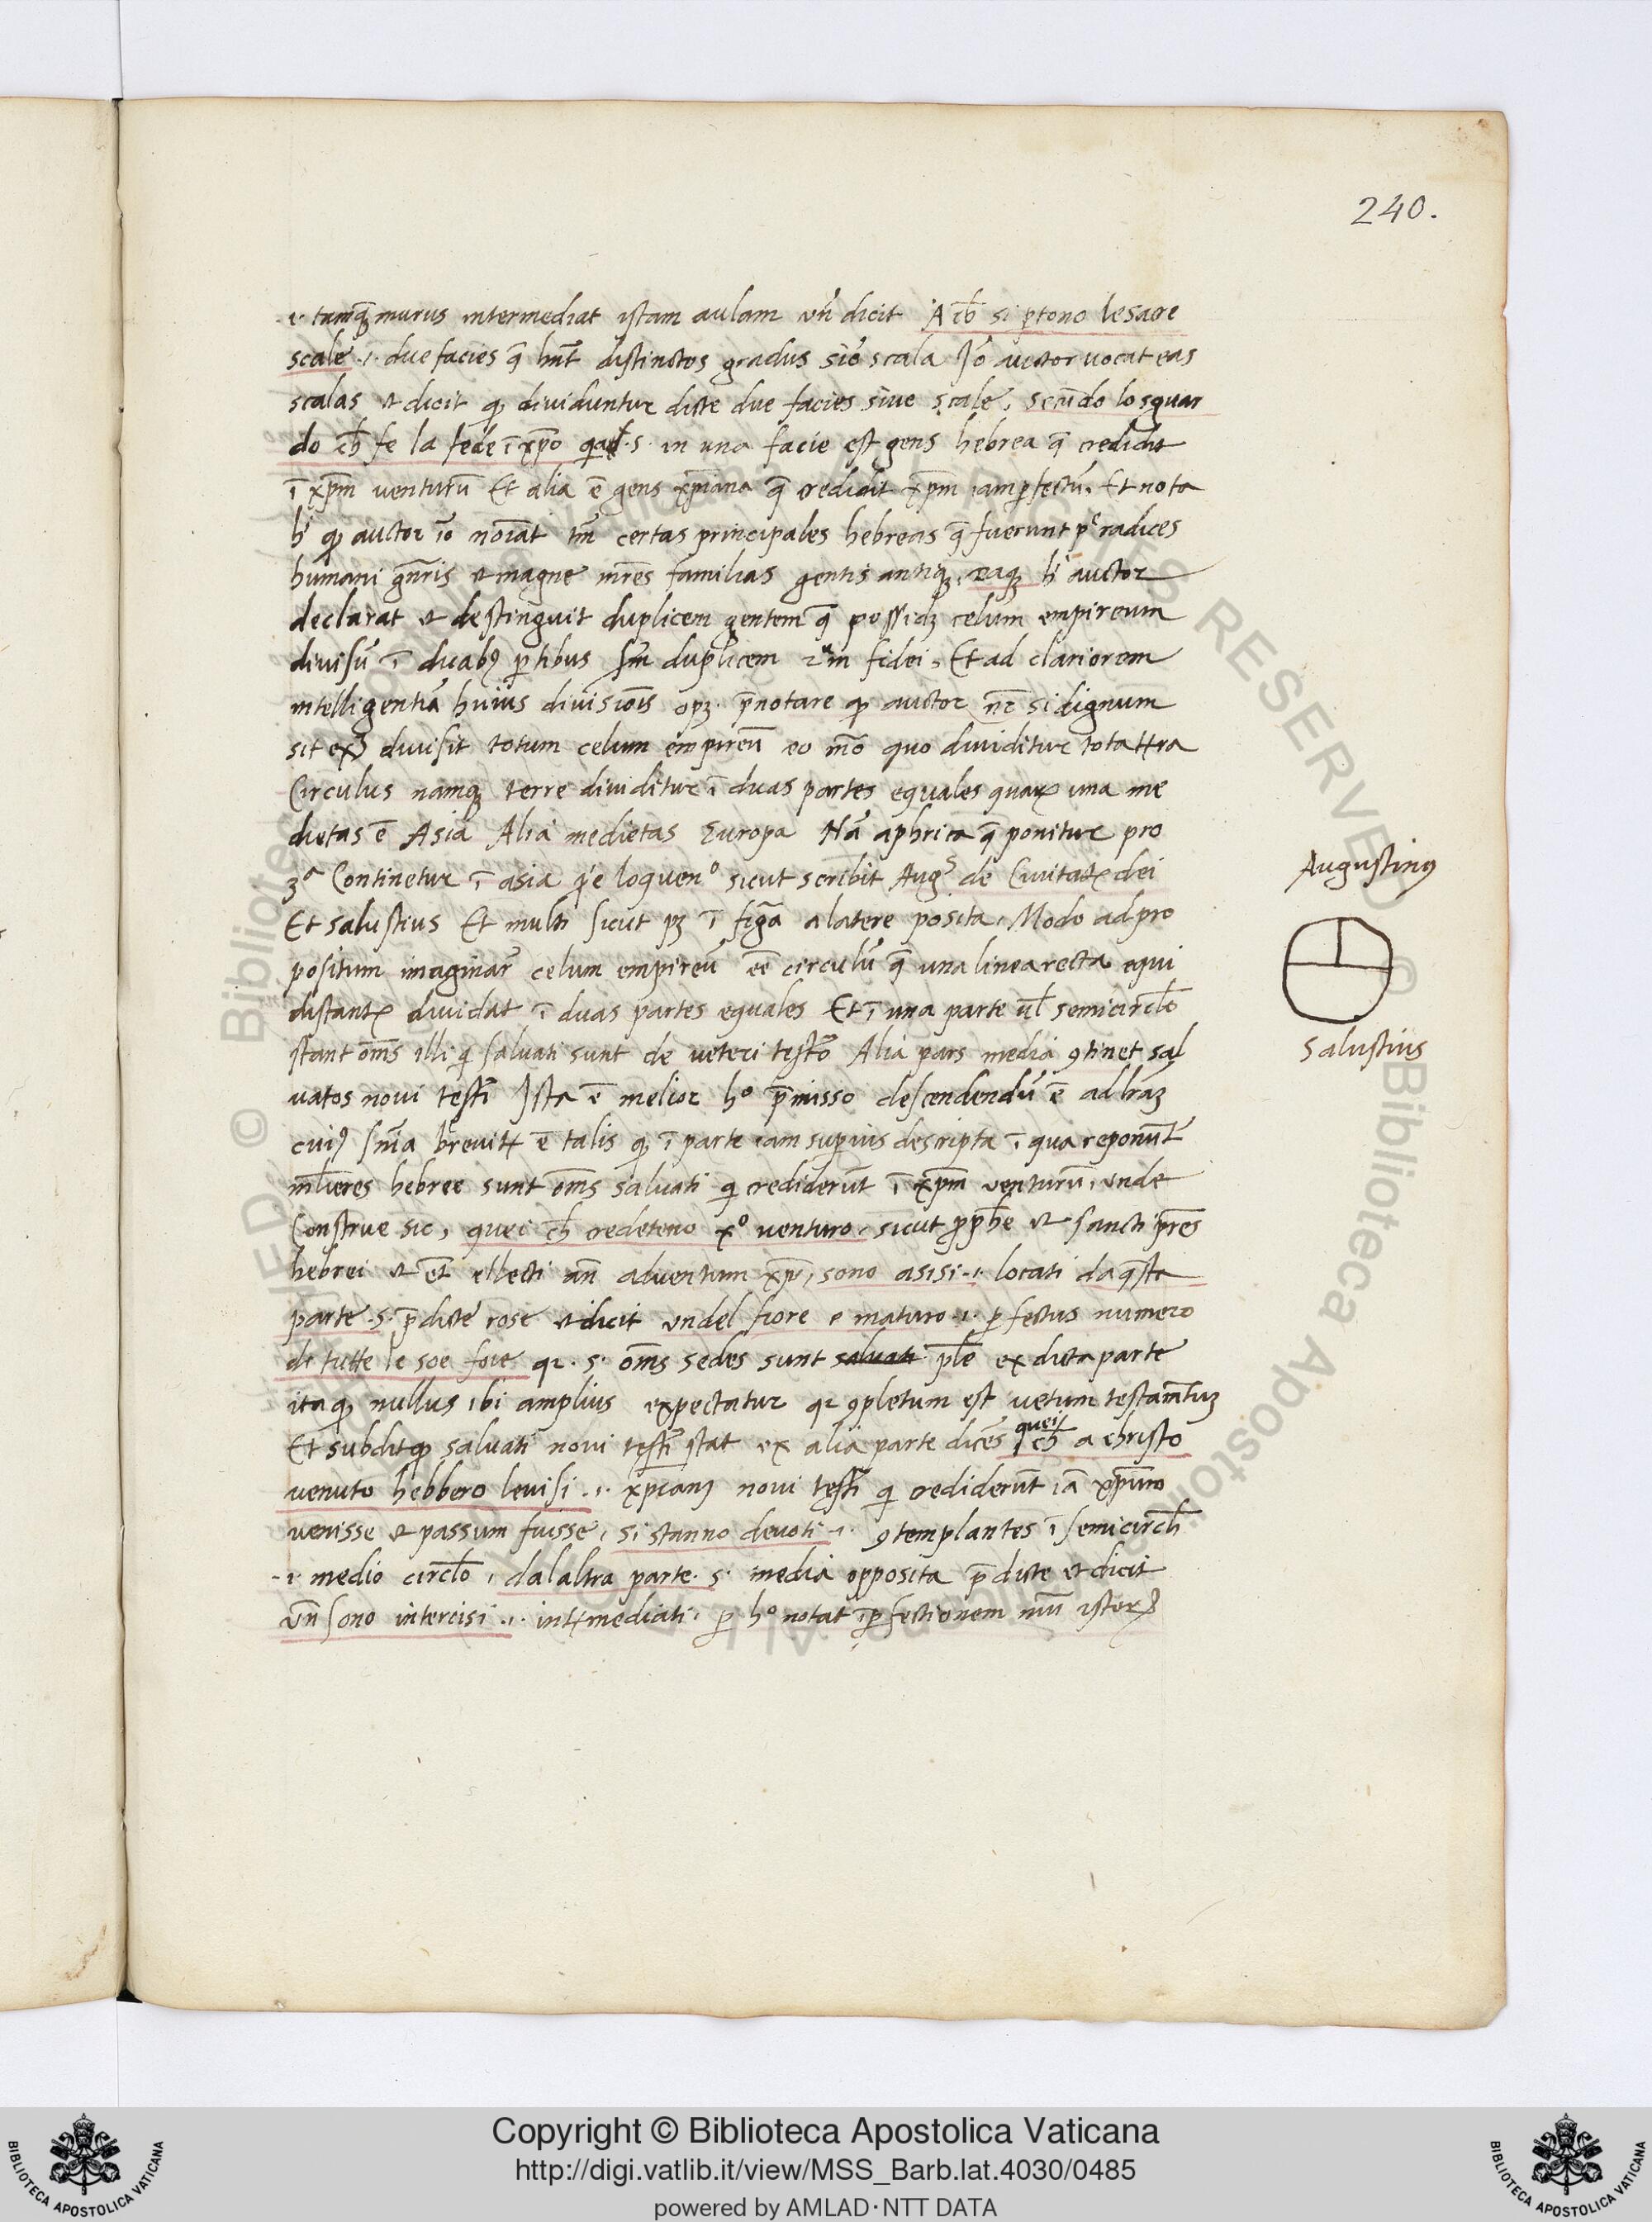 240.
.i. tamq̄ murus intermediat istam aulam vn̄ dicit A cħ si ptono le sacre
scale .i. due facies q̄ hn̄t distinctos gradus sic̄ scala Iō auctor vocat eas
scalas et dicit qꝫ dividuntur dicte due facies sive scale, secūdo lo sguar
do cħ fe la fede ī xp̄o .s. in una facie est gens hebrea q̄ credidit
ī xp̄m venturū Et alia ē gens xp̄iana q̄ credidit xp̄m iam pfectū. Et nota
h' qꝫ auctor iō noīat tm̄ certas principales hebreas q̄ fuerunt radices
humani gn̄ris et magne mr̄es familias gentis antiqꝫ, h' auctor
declarat et destinguit duplicem gentem q̄ possidꝫ celum empireum
divisū ī duabꝰ ptibus sm̄ duplicem fidei. Et ad clariorem
intelligentiā huius divisiōis opꝫ. p̄notare qꝫ auctor nr̄ si dignum
sit divisit totum celum empireū eo mō quo dividitur tota tt̄ra
Circulus namqꝫ terre dividitur ī duas partes equales quaꝝ una me
dietas ē Asia Alia medietas Europa Nā aphrica q̄ ponitur pro
3ᵃ Continetur ī asia loquenᵒ sicut scribit Augˢ de Civitate dei
Et salustius Et multi sicut pꝫ ī figā a latere posita. Modo ad pro
positum imaginar̄ celum empireū eē circulū q̄ una linea recta equi
distante dividat ī duas partes equales Et ī una parte vl̄ semicirclo
stant oms̄ illi qi salvati sunt de veteri testō Alia pars media ꝯtinet sal
vatos novi testī Ista ē melior hᵒ p̄misso descendendū ē ad lrāꝫ
cuiꝰ snīa brevitꝫ ē talis qꝫ ī parte iam supius descripta ī qua reponūt'
ml̄ieres hebree sunt oms̄ salvati qi crediderūt ī xp̄m venturū, unde
Construe sic, quei cħ credeteno xᵒ venturo, sicut pp̄he et sancti pr̄es
hebrei et et̄ ellecti an̄ adventum xp̄i, sono asisi .i. locati da q̄sta
parte .s. p̄dicte rose et dicit undel fiore e maturo .i. pfectus numero
di tutte le soe foie qr. s. oms̄ sedes sunt salvati pl̄e ex dicta parte
ita qꝫ nullus ibi amplius expectatur qr ꝯpletum est vetum testam̄tuꝫ
Et subdit qꝫ salvati novi testī stat ex alia parte dicēs quei cħ a christo
venuto hebbero levisi .i. xp̄ianꝫ novi testī qi crediderūt iā xp̄um
venisse et passum fuisse, si stanno devoti .i. ꝯtemplantes ī semicircli
.i. medio circlo, dal altra parte .s. media opposita p̄dicte et dicit
vn̄ sono intercisi .i. intermediati. p hᵒ notat īpfectionem istoꝝ
Augustinꝰ
Salustius
Copyright © Biblioteca Apostolica Vaticana
http://digi.vatlib.it/view/MSS_Barb.lat.4030/0485
powered by AMLAD·NTT DATA
BIBLIOTECA APOSTOLICA VATICANA
BIBLIOTECA APOSTOLICA VATICANA